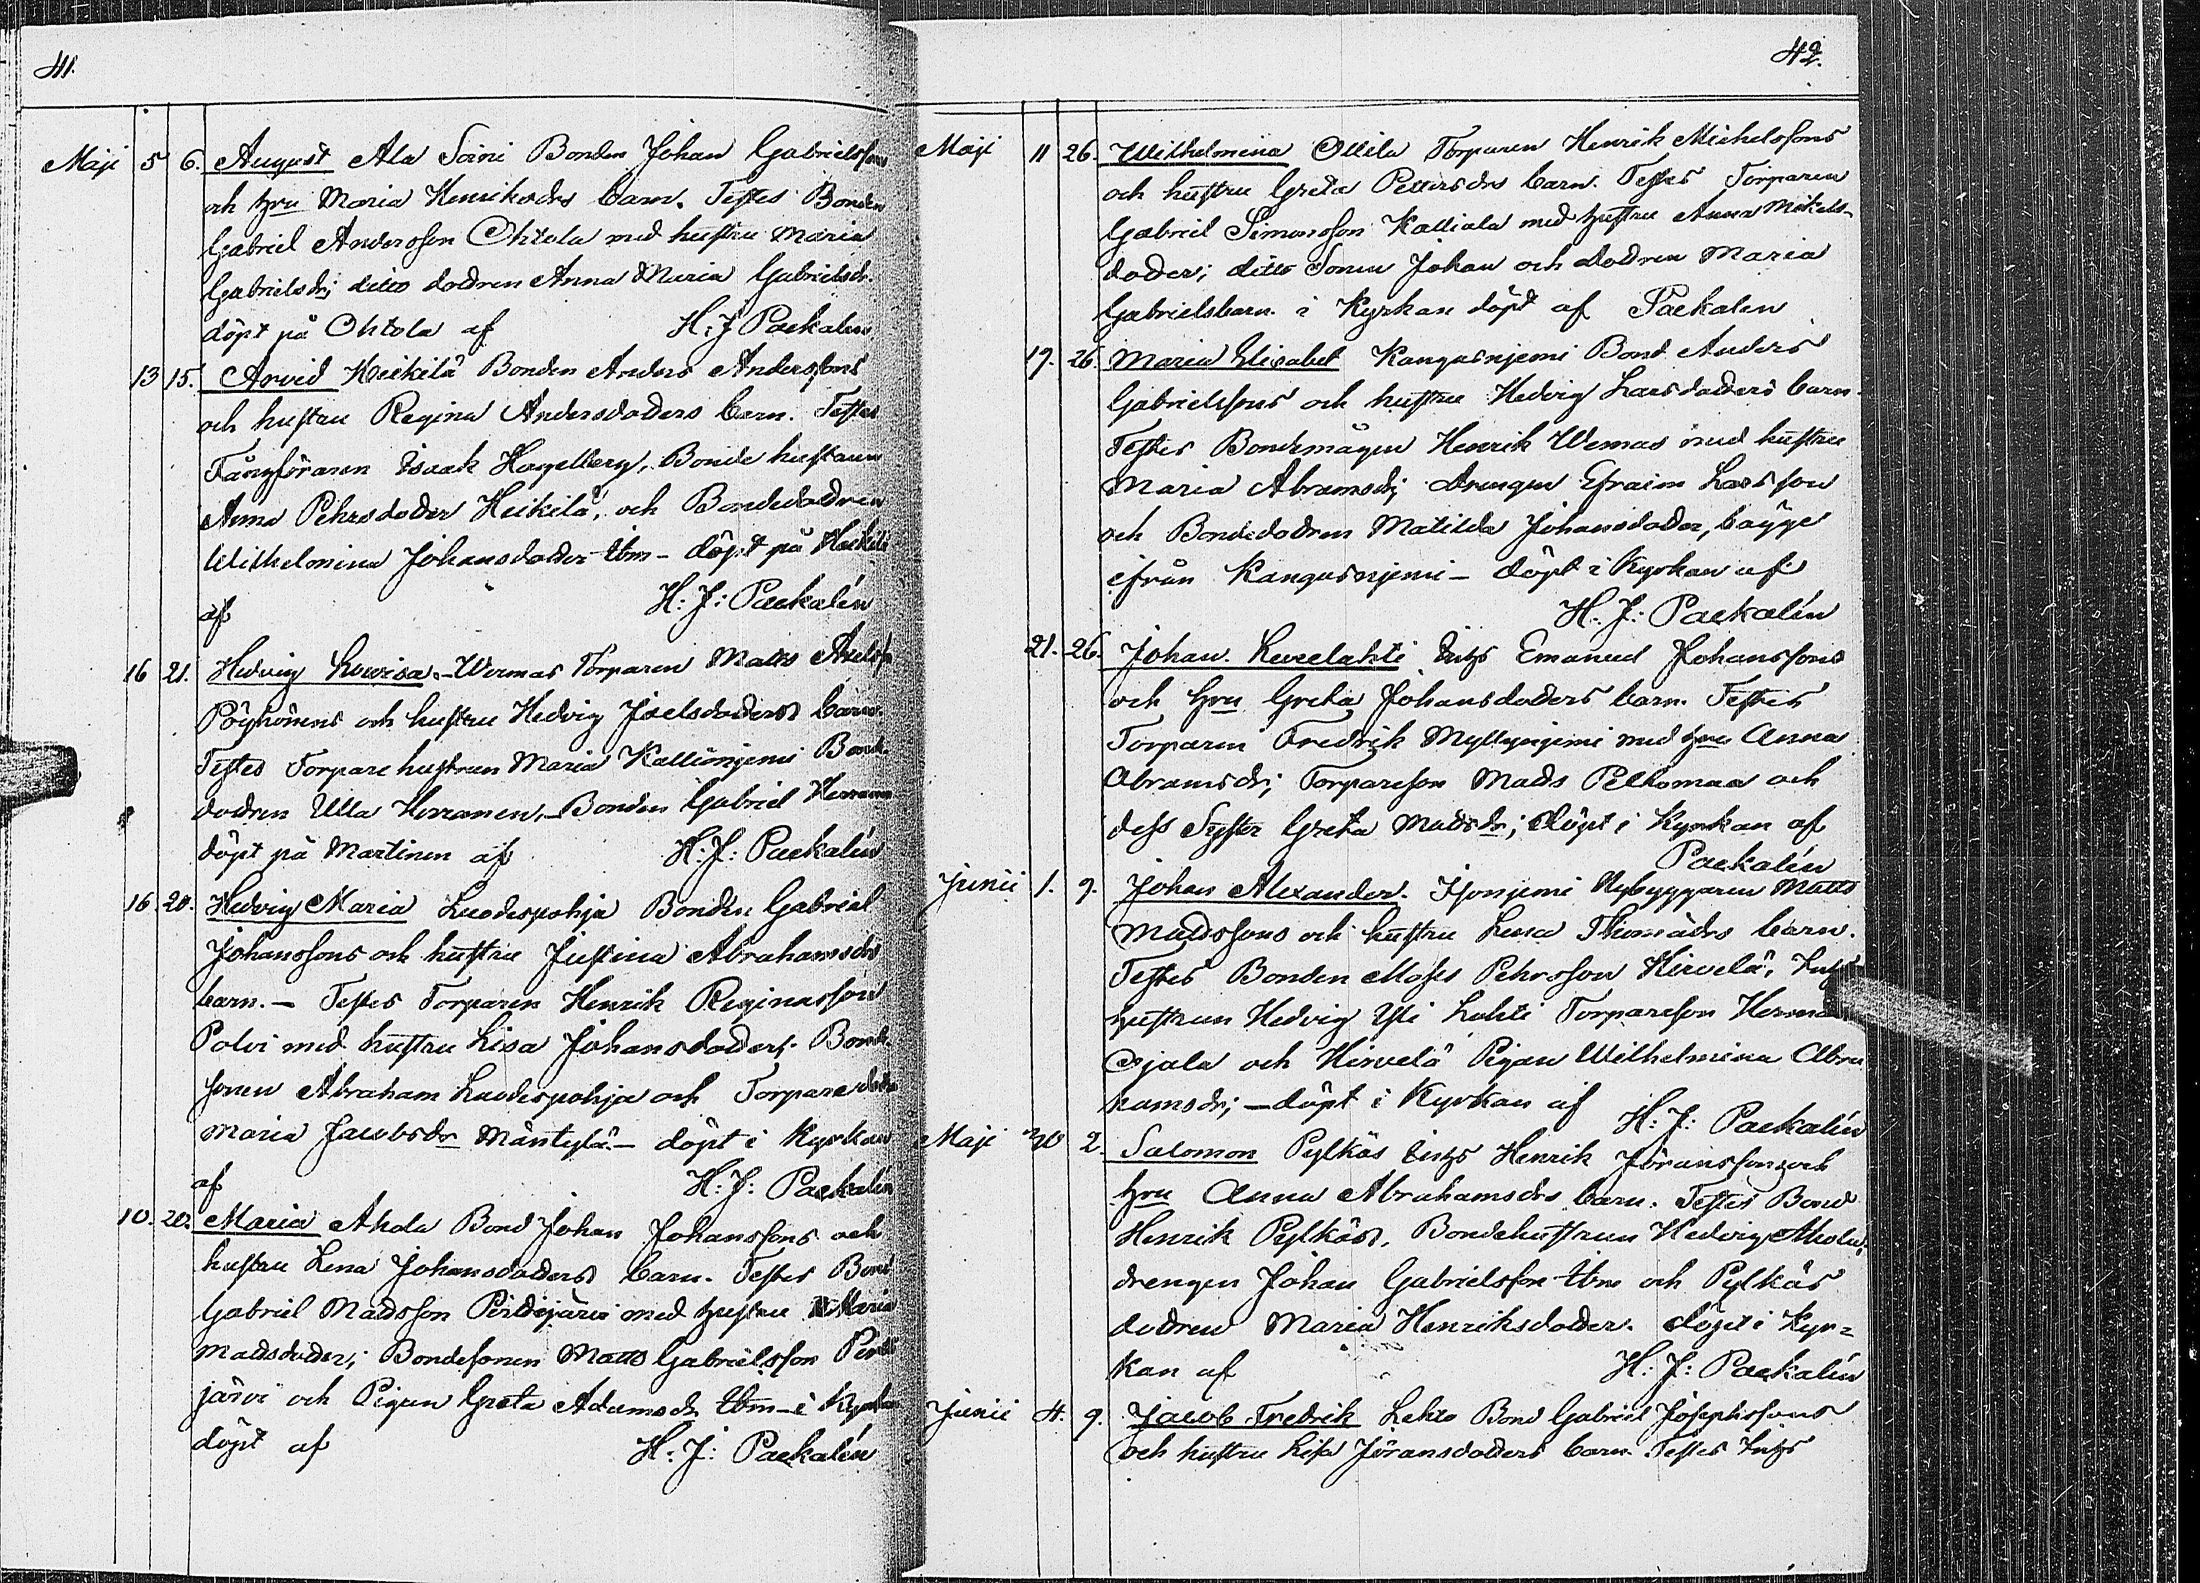 41.
Maji 5 6. August Ala Soini Bonden Johan Gabrielssons
och hru Maria Henriksdrs barn. Testes Bonden
Gabriel Andersson Ohtola med hustru Maria
Gabrielsdr; ditto dodren Anna Maria Gabrielsdr.
döpt på Ohtola af H: J Paekalén
13 15. Arvid Heikilä Bonden Anders Anderssons
och hustru Regina Andersdoders barn. Testes
Fångföraren Isaak Hagelberg, Bonde hustrun
Anna Pehrsdoder Heikilä, och Bondedodren
Wilhelmina Johansdoder Ibm – döpt på Heikilä
af H: J: Paekalén
16 21. Hedvig Lowisa. – Wermas Torparen Matts Axelss
Pöyhönens och hustru Hedvig Joelsdoders barn.
Testes Torpare hustrun Maria Kallioinjemi Bond
dodren Ulla Herranen, – Bonden Gabriel Herranen
döpt på Martinen af H: J: Paekalén
16. 20. Hedvig Maria Luodespohja Bonden Gabriel
Johanssons och hustru Justina Abrahamsdrs
barn. – Testes Torparen Henrik Reginasson
Polvi med hustru Lisa Johansdoder; Bonde
sonen Abraham Luodespohja och Torparedodr
Maria Jacobsdr Mäntylä. – döpt i Kyrkan
af H: J: Paekalén
10. 20. Maria Ahola Bond Johan Johanssons och
hustru Lena Johansdoders barn. Testes Bond
Gabriel Madsson Perdijärvi med hustru Maria
Madsdoder; Bondesonen Matts Gabrielsson Perdi
järvi och Pigan Greta Adamsdr Ibm – i Kyrkan
döpt af H: J: Paekalén
42.
Maji 11 26. Wilhelmina Ollila Torparen Henrik Michelssons
och hustru Greta Pettersdrs barn. Testes Torparen
Gabriel Simonsson Kalliala med hustru Anna Mikels-
doder; ditto Sonen Johan och dodren Maria
Gabrielsbarn i Kyrkan döpt af Paekalén
19. 26. Maria Elisabet Kangasnjemi Bond Anders
Gabrielssons och hustru Hedvig Larsdoders barn.
Testes Bondemågen Henrik Wermas med hustru
Maria Abramsdr; drengen Efraim Larsson
och Bondedodren Matilda Johansdoder, bägge
ifrån Kangasnjemi – döpt i Kyrkan af
H: J: Paekalén
21. 26. Johan. Kevelahti Inhs Emanuel Johanssons
och hru Greta Johansdoders barn. Testes
Torparen Fredrik Myllynjemi med hru Anna
Abramsdr; Torpareson Mads Peltomaa och
dess Syster Greta Madsdr; döpt i Kyrkan af
Paekalén
Junii 1. 9. Johan Alexander. Isonjemi Nybyggaren Matts
Madssons och hustru Lena Thomädrs barn.
Testes Bonden Moses Pehrsson Hirvelä, Inhs
hustrun Hedvig Yli Lahti Torpareson Herman
Ojala och Hirvelä Pigan Wilhelmina Abra
hamsdr; – döpt i Kyrkan af H: J: Paekalén
Maji 30 2. Salomon Pylkäs Inhs Henrik Jöranssons och
hru Anna Abrahamsdrs barn. Testes Bond
Henrik Pylkäs, Bondehustrun Hedvig Ahola,
drengen Johan Gabrielsson Ibm och Pylkäs
dodren Maria Henriksdoder. döpt i Kyr=
kan af H: J: Paekalén
Junii 4. 9. Jacob Fredrik Lehto Bond Gabriel Josephssons
och hustru Lisa Jöransdoders barn. Testes Inhs